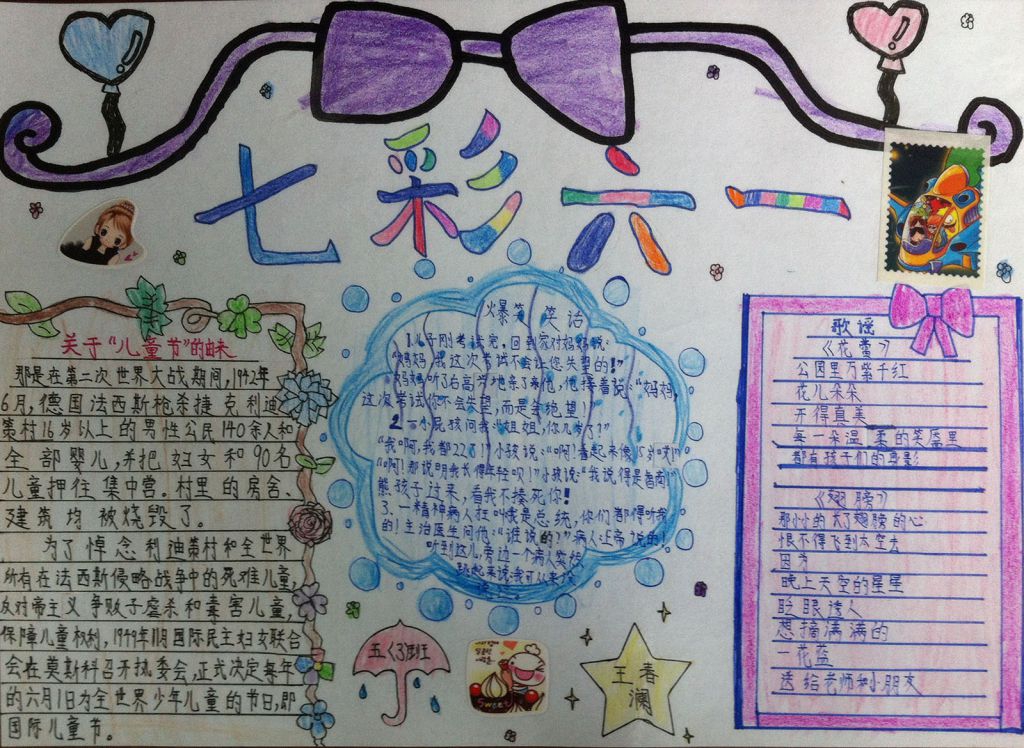 七彩六一
关于“儿童节”的由来
那是在第二次世界大战期间,1942年
6月,德国法西斯枪杀捷克利迪
策村16岁以上的男性公民140余人和
全部婴儿,并把妇女和90名
儿童押往集中营。村里的房舍、
建筑均被烧毁了。
为了悼念利迪策村和全世界
所有在法西斯侵略战争中的死难儿童,
反对帝主义争贩子虐杀和毒害儿童,
保障儿童权利,1949年11月国际民主妇女联合
会在莫斯科召开执委会,正式决定每年
的六月1日为全世界少年儿童的节日,即
国际儿童节。
火爆笑 笑话
1.儿子刚考试完,回到家对妈妈说:
“妈妈,我这次考试不会让您失望的!”
妈妈听了后高兴地亲了亲他,他接着说:“妈妈,
这次考试你不会失望,而是会绝望!
2.一小屁孩问我:“姐姐,你几岁了?”
“我啊,我都22了!”小孩说:“啊!看起来像15岁哎!”
“啊!那说明我长得年轻呗!”小孩说:“我说得是智商!”
熊孩子过来,看我不揍死你!
3.一精神病人狂叫:我是总统,你们都得听我
的!主治医生问他:“谁说的?”病人:上帝说的!
听到这儿,旁边一个病人突然
跳起来说:我可从来没
歌谣
《花赏》
公园里万紫千红
花儿朵朵
开得真美
每一朵温柔的笑唇里
都有孩子们的身影
《翅膀》
那小小的长了翅膀的心
恨不得飞到太空去
因为
晚上天空的星星
眨眼诱人
想摘满满的
一花篮
送给老师和小朋友
五〈3〉班
Sweet
王春
澜